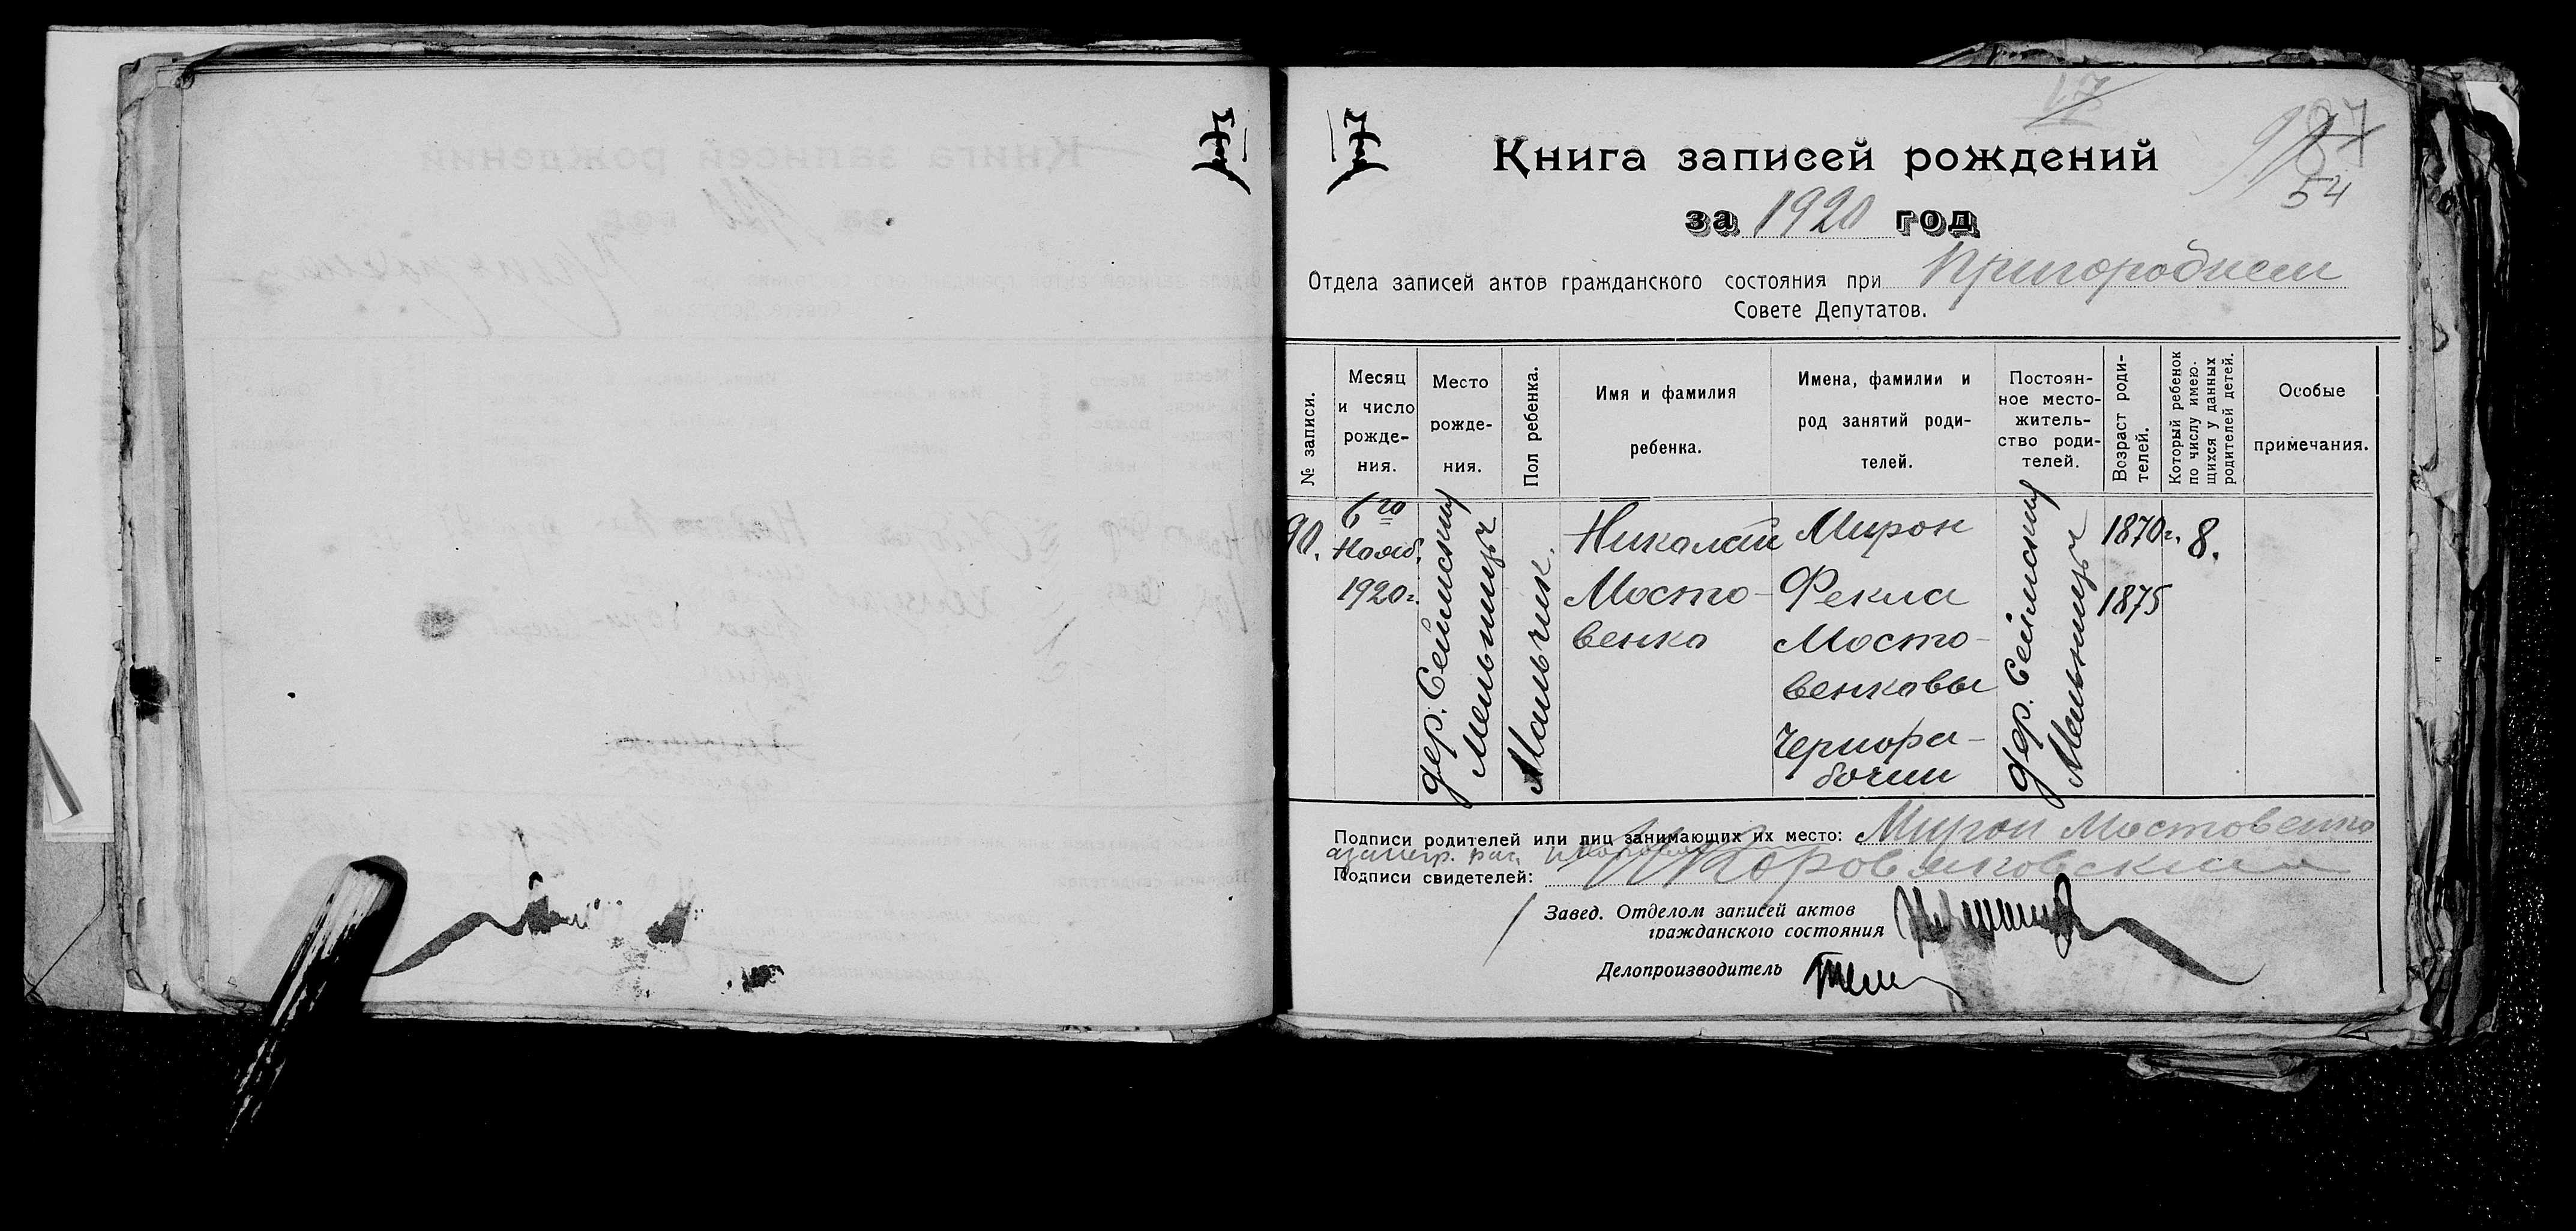 Книга записей рождений
за 1920 год
54
Отдела записей актов гражданского состояния при Пригороднем
Совете Депутатов.
№ записи.
Месяц и число рожде- ния.
Место рожде- ния.
Пол ребенка.
Имя и фамилия ребенка.
Имена, фамилии и род занятий роди- телей.
Постоян- ное место- житель- ство роди- телей.
Возраст роди- телей.
Который ребенок по числу имею- щихся у данных родителей детей.
Особые примечания.
90.
6го
Нояб.
1920г.
дер. Сеймский
Мельницы
Мальчик.
Николай
Мосто-
венко
Мирон
Фекла
Мосто-
венковы
Чернора-
бочии
дер. Сеймский
Мельницы
1870г.
1875
8.
Подписи родителей или лиц занимающих их место: Мирон Мостовенко
Подписи свидетелей: Коровяковский
Завед. Отделом записей актов
гражданского состояния
Делопроизводитель